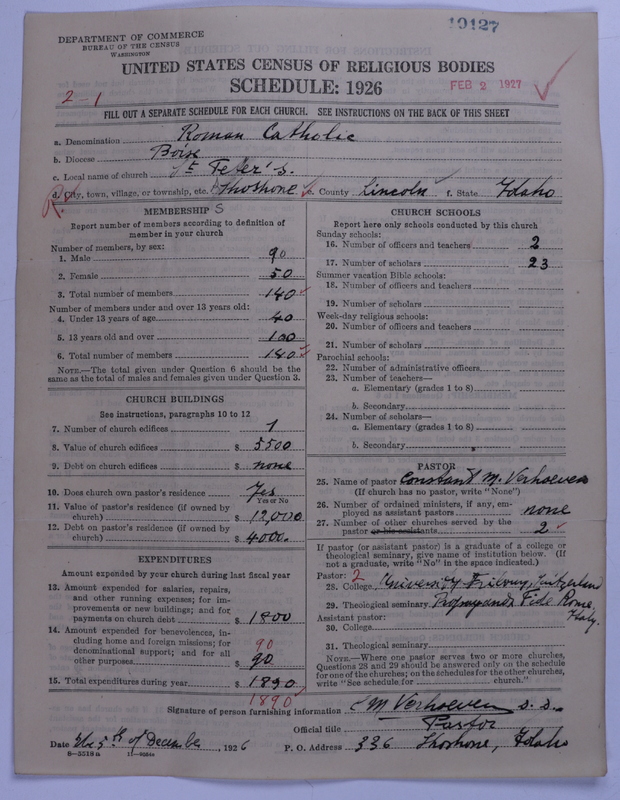 19127
DEPARTMENT OF COMMERCE
BUREAU OF THE CENSUS
WASHINGTON
UNITED STATES CENSUS OF RELIGIOUS BODIES
SCHEDULE: 1926
FEB 2 1927
2-1
FILL OUT A SEPARATE SCHEDULE FOR EACH CHURCH. SEE INSTRUCTIONS ON THE BACK OF THIS SHEET
a. Denomination Roman Catholic
b. Diocese Boise
c. Local name of church St Peter's.
d. City, town, village, or township, etc. Shoshone e. County Lincoln f. State Idaho
MEMBERSHIP S
Report number of members according to definition of
member in your church
Number of members, by sex:
1. Male 90
2. Female 50
3. Total number of members 140
Number of members under and over 13 years old:
4. Under 13 years of age 40
5. 13 years old and over 100
6. Total number of members 140
NOTE.—The total given under Question 6 should be the
same as the total of males and females given under Question 3.
CHURCH BUILDINGS
See instructions, paragraphs 10 to 12
7. Number of church edifices 1
8. Value of church edifices $ 5500
9. Debt on church edifices $ none
10. Does church own pastor's residence Yes
Yes or No
11. Value of pastor's residence (if owned by
church) $ 12,000
12. Debt on pastor's residence (if owned by
church) $ 4000.
EXPENDITURES
Amount expended by your church during last fiscal year
13. Amount expended for salaries, repairs,
and other running expenses; for im-
provements or new buildings; and for
payments on church debt $ 1800
14. Amount expended for benevolences, in-
cluding home and foreign missions; for
denominational support; and for all 90
other purposes $ 90
15. Total expenditures during year $ 1890
1890
CHURCH SCHOOLS
Report here only schools conducted by this church
Sunday schools:
16. Number of officers and teachers 2
17. Number of scholars 23
Summer vacation Bible schools:
18. Number of officers and teachers
19. Number of scholars
Week-day religious schools:
20. Number of officers and teachers
21. Number of scholars
Parochial schools:
22. Number of administrative officers
23. Number of teachers—
a. Elementary (grades 1 to 8)
b. Secondary
24. Number of scholars—
a. Elementary (grades 1 to 8)
b. Secondary
PASTOR
25. Name of pastor Constant M. Verhoeven
(If church has no pastor, write "None")
26. Number of ordained ministers, if any, em-
ployed as assistant pastors none
27. Number of other churches served by the
pastor or his assistants 2
If pastor (or assistant pastor) is a graduate of a college or
theological seminary, give name of institution below. (If
not a graduate, write "No" in the space indicated.)
Pastor: 2
28. College University Fribourg, Switzerland
29. Theological seminary Propaganda Fide Rome,
Italy.
Assistant pastor:
30. College
31. Theological seminary
NOTE.—Where one pastor serves two or more churches,
Questions 28 and 29 should be answered only on the schedule
for one of the churches; on the schedules for the other churches,
write "See schedule for church."
Signature of person furnishing information C M Verhoeven
Official title Pastor
Date the 5th of December, 1926 P. O. Address 336 Shoshone, Idaho
8—5518a